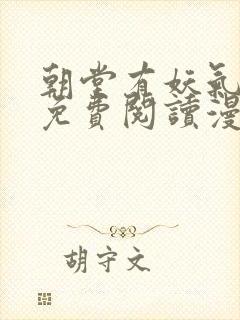 朝堂有妖氣
免費閱讀漫
胡守文